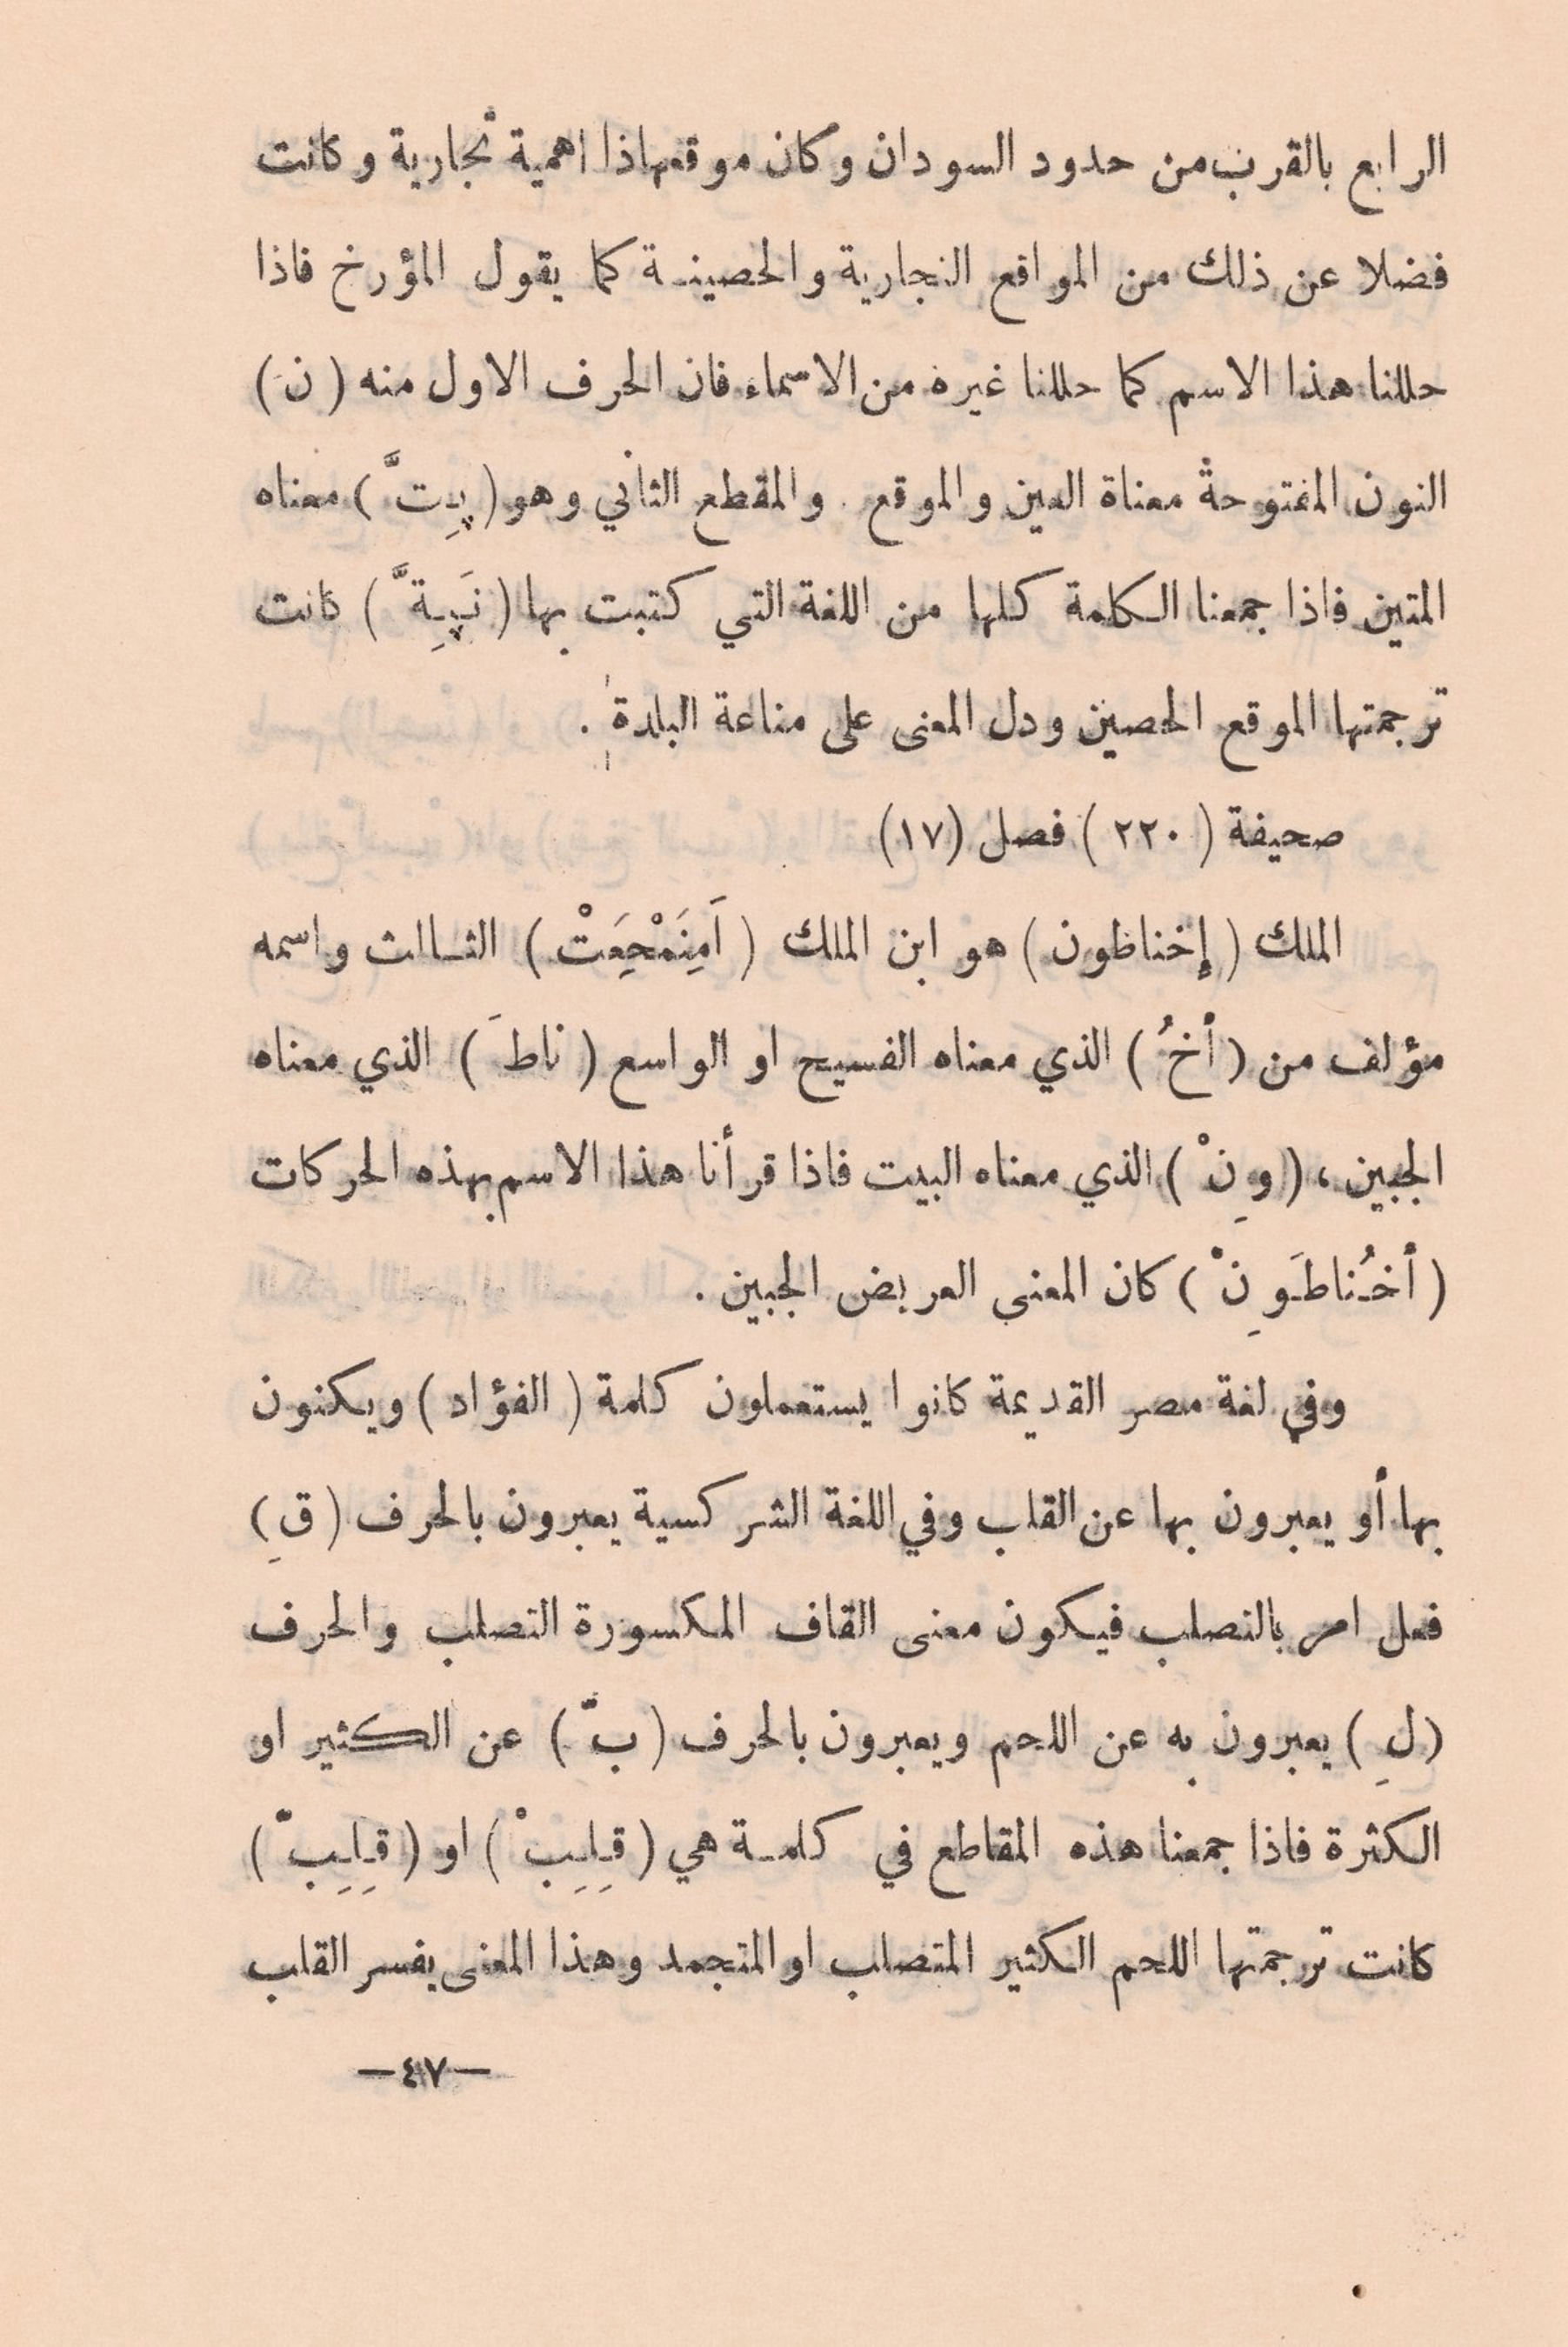 الرابع بالقرب من حدود السودان وكان موقعها ذا اهمية تجارية وكانت
فضلا عن ذلك من المواقع التجارية والحصينـة كما يقول المؤرخ فاذا
حللنا هذا الاسم كما حللنا غيره من الاسماء فان الحرف الاول منه (نَ)
النون المفتوحة معناة العين والموقع . والمقطع الثاني وهو (پِـتَّ) معناه
المتين فاذا جمعنا الكلمة كلها من اللغة التي كتبت بها (نَپِـةَّ) كانت
ترجمتها الموقع الحصين ودل المعنى على مناعة البلدة .
صحيفة (٢٢٠) فصل (١٧)
الملك (إخناظون) هو ابن الملك (اَمِنَمْحِعَتْ) الثـالث واسمه
مؤلف من (أخُ) الذي معناه الفسيح او الواسع (ناطَ) الذي معناه
الجبين ، (وِنْ) الذي معناه البيت فاذا قرأنا هذا الاسم بهذه الحركات
(أخُـناطَـوِنْ) كان المعنى العريض الجبين .
وفي لغة مصر القديمة كانوا يستعملون كلمة (الفؤاد) ويكنون
بها أو يعبرون بها عن القلب وفي اللغة الشركسية يعبرون بالحرف (قِ)
فعل امر بالتصلب فيكون معنى القاف المكسورة التصلب والحرف
(لِ) يعبرون به عن اللحم ويعبرون بالحرف (بّ) عن الكثير او
الكثرة فاذا جمعنا هذه المقاطع في كلمـة هي (قِـلِـبْ) او (قِـلِـبّ)
كانت ترجمتها اللحم الكثير المتصلب او المتجمد وهذا المعنى يفسر القلب
—٤٧—